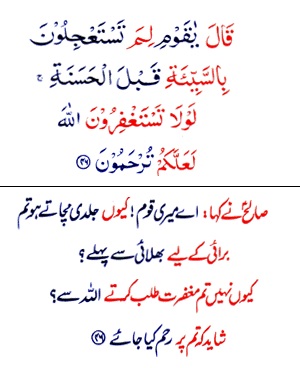 قَالَ يٰقَوْمِ لِمَ تَسْتَعْجِلُوْنَ
بِالسَّيِّئَةِ قَبْلَ الْحَسَنَةِ ۚ
لَوْلَا تَسْتَغْفِرُوْنَ اللّٰهَ
لَعَلَّكُمْ تُرْحَمُوْنَ ﴿۴۶﴾
صالحؑ نے کہا: اے میری قوم! کیوں جلدی مچاتے ہو تم
برائی کے لیے بھلائی سے پہلے؟
کیوں نہیں تم مغفرت طلب کرتے اللہ سے؟
شاید کہ تم پر رحم کیا جائے ﴿۴۶﴾